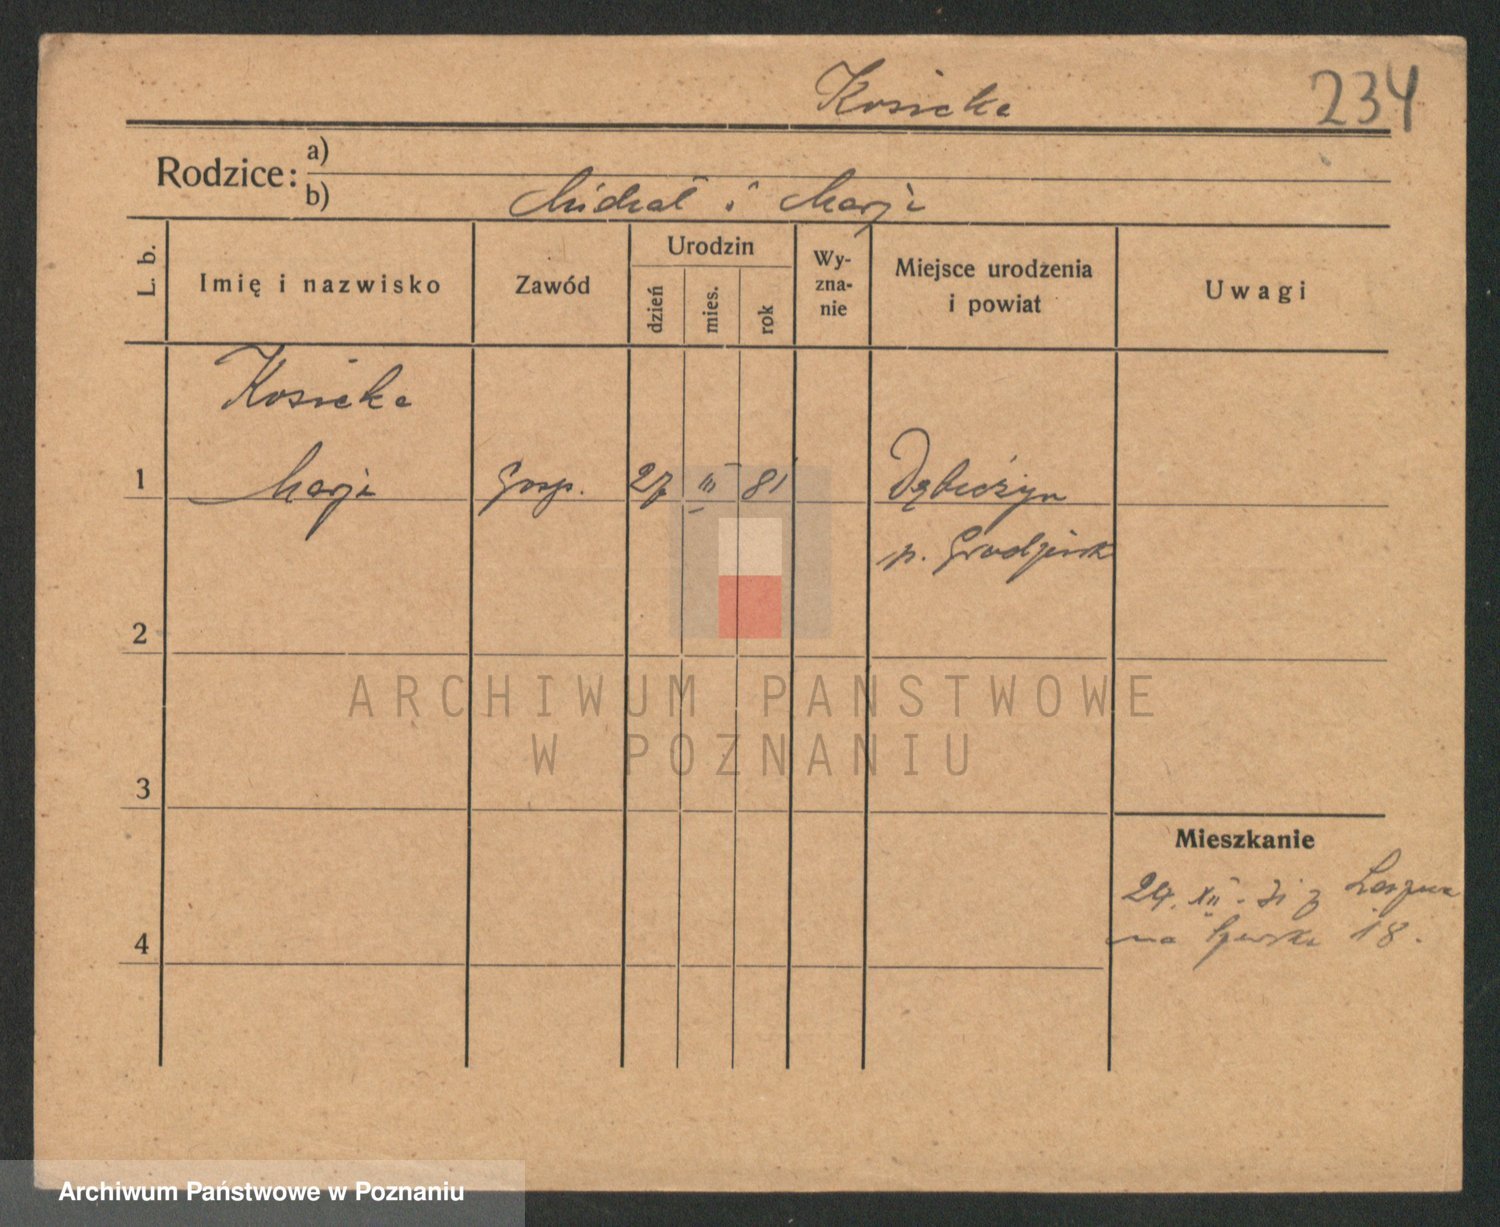 Kosicka 234
Rodzice: a)
b) Michał i Marja
L. b.
Imię i nazwisko
Zawód
Urodzin
dzień
mies.
rok
Wy-
zna-
nie
Miejsce urodzenia
i powiat
Uwagi
Kosicka
1 Marja Gosp. 27 III 81
p. Grodzisk
2
3
4
Mieszkanie
24. XII. 31 z
na 18.
ARCHIWUM PAŃSTWOWE
W POZNANIU
Archiwum Państwowe w Poznaniu